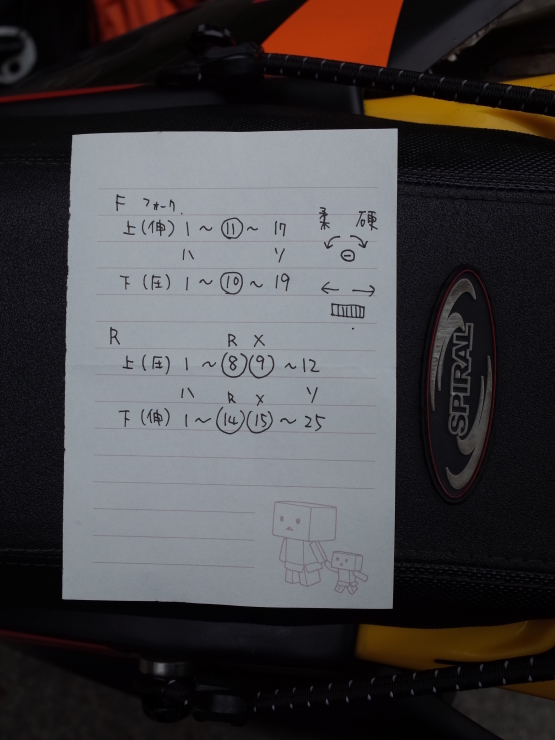 F フォーク.
上(伸) 1 ~ ⑪ ~ 17 柔 硬
ハ ソ
下(圧) 1 ~ ⑩ ~ 19
R R X
上(圧) 1 ~ ⑧⑨ ~ 12
ハ R X ソ
下(伸) 1 ~ ⑭⑮ ~ 25
SPIRAL